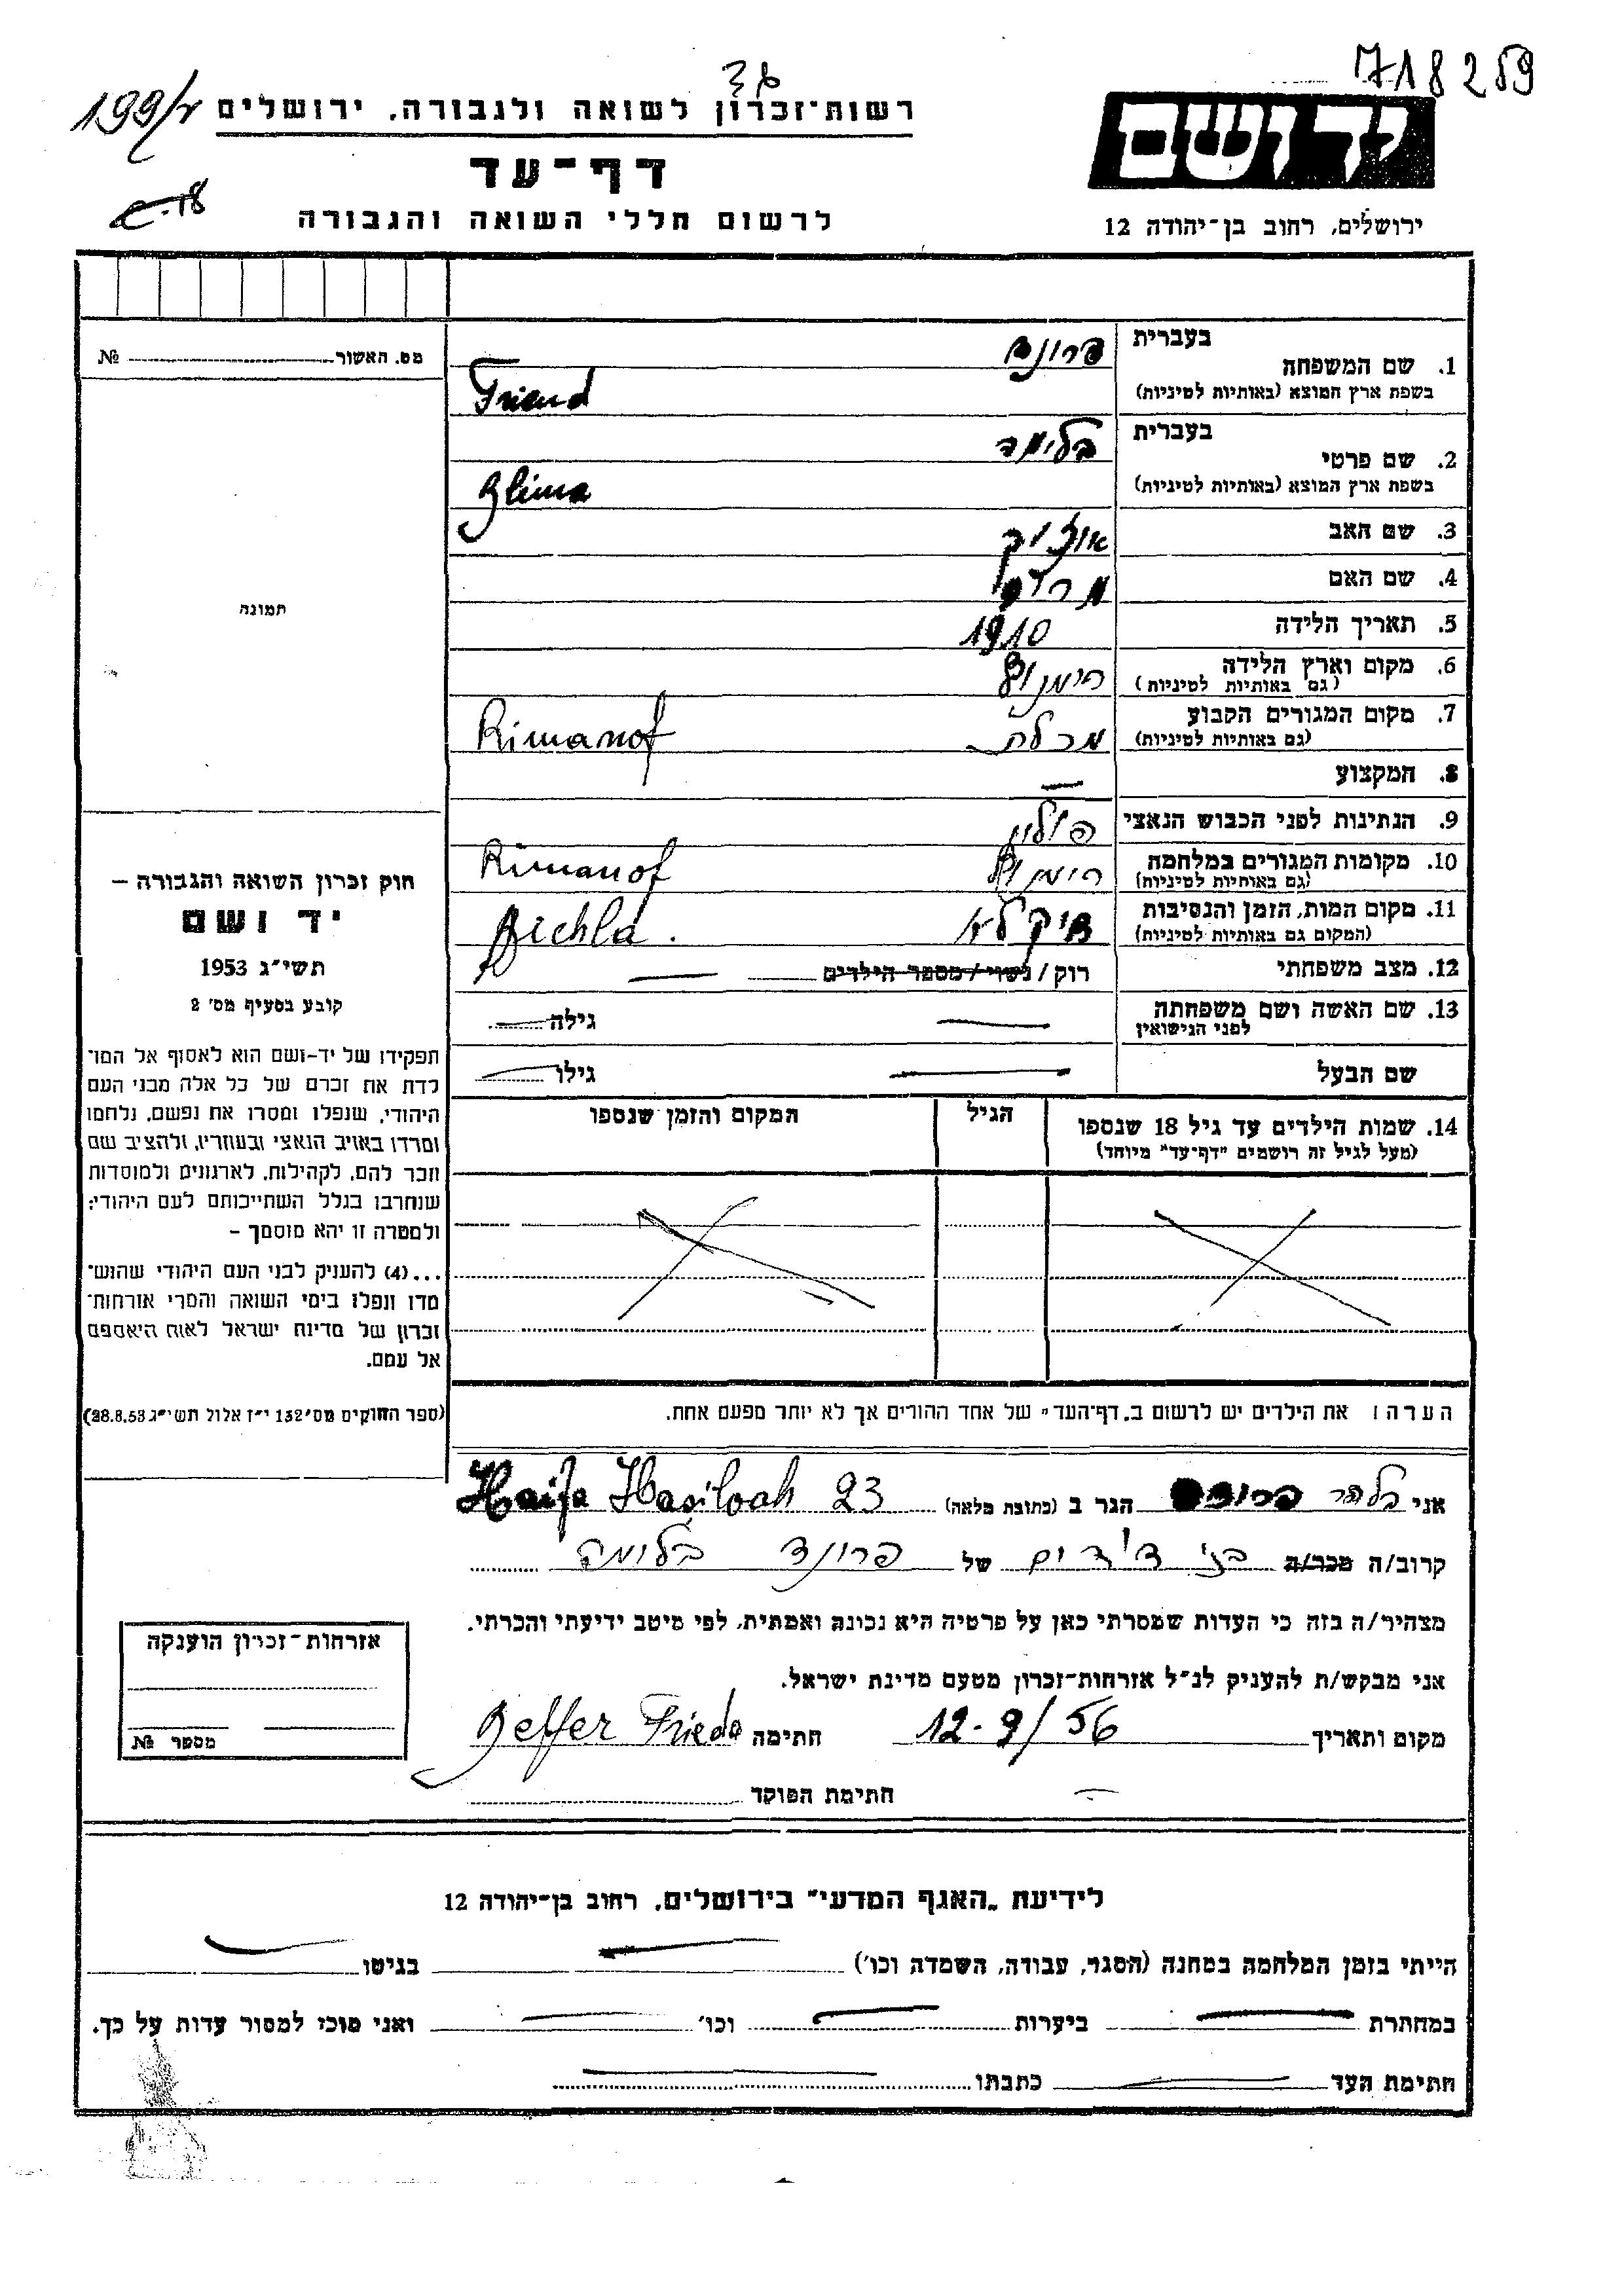 718259
199/2
רשות־זכרון לשואה ולגבורה, ירושלים
יד ושם
דף־עד
לרשום חללי השואה והגבורה
ירושלים, רחוב בן־יהודה 12
מס. האשור № 
בעברית
1. שם המשפחה
בשפת ארץ המוצא (באותיות לטיניות)
Friend
בעברית
2. שם פרטי בלימה
בשפת ארץ המוצא (באותיות לטיניות)
Blima
3. שם האב
4. שם האם
5. תאריך הלידה 1910
6. מקום וארץ הלידה רימנוב
(גם באותיות לטיניות)
7. מקום המגורים הקבוע Rimanof
(גם באותיות לטיניות)
8. המקצוע —
9. הנתינות לפני הכבוש הנאצי פולין
10. מקומות המגורים במלחמה רימנוב Rimanof
(גם באותיות לטיניות)
11. מקום המות, הזמן והנסיבות
(המקום גם באותיות לטיניות)
12. מצב משפחתי רוק / נשוי / מספר הילדים
13. שם האשה ושם משפחתה גילה
לפני הנישואין
שם הבעל גילו
14. שמות הילדים עד גיל 18 שנספו הגיל המקום והזמן שנספו
(מעל לגיל זה רושמים "דף־עד" מיוחד)
הערה: את הילדים יש לרשום ב„דף־העד" של אחד ההורים אך לא יותר מפעם אחת.
תמונה
חוק זכרון השואה והגבורה –
יד ושם
תשי"ג 1953
קובע בסעיף מס' 2
תפקידו של יד-ושם הוא לאסוף אל המו־
לדת את זכרם של כל אלה מבני העם
היהודי, שנפלו ומסרו את נפשם, נלחמו
ומרדו באויב הנאצי ובעוזריו, ולהציב שם
וזכר להם, לקהילות, לארגונים ולמוסדות
שנחרבו בגלל השתייכותם לעם היהודי;
ולמטרה זו יהא מוסמך –
...(4) להעניק לבני העם היהודי שהוש־
מדו ונפלו בימי השואה והמרי אזרחות־
זכרון של מדינת ישראל לאות היאספם
אל עמם.
(ספר החוקים מס' 132 י"ז אלול תשי"ג 28.8.53)
אני הגר ב (כתובת מלאה) Haifa Hasiloah 23
קרוב/ה מכר/ה של פרונד בלומה
מצהיר/ה בזה כי העדות שמסרתי כאן על פרטיה היא נכונה ואמתית, לפי מיטב ידיעתי והכרתי.
אני מבקש/ת להעניק לנ"ל אזרחות־זכרון מטעם מדינת ישראל.
מקום ותאריך 12-9/56 חתימה Geffer Frieda
חתימת הפוקד
אזרחות־זכרון הוענקה
מספר №
לידיעת „האגף המדעי" בירושלים, רחוב בן־יהודה 12
הייתי בזמן המלחמה במחנה (הסגר, עבודה, השמדה וכו') בגיטו
במחתרת ביערות וכו' ואני מוכן למסור עדות על כך.
חתימת העד כתבתו